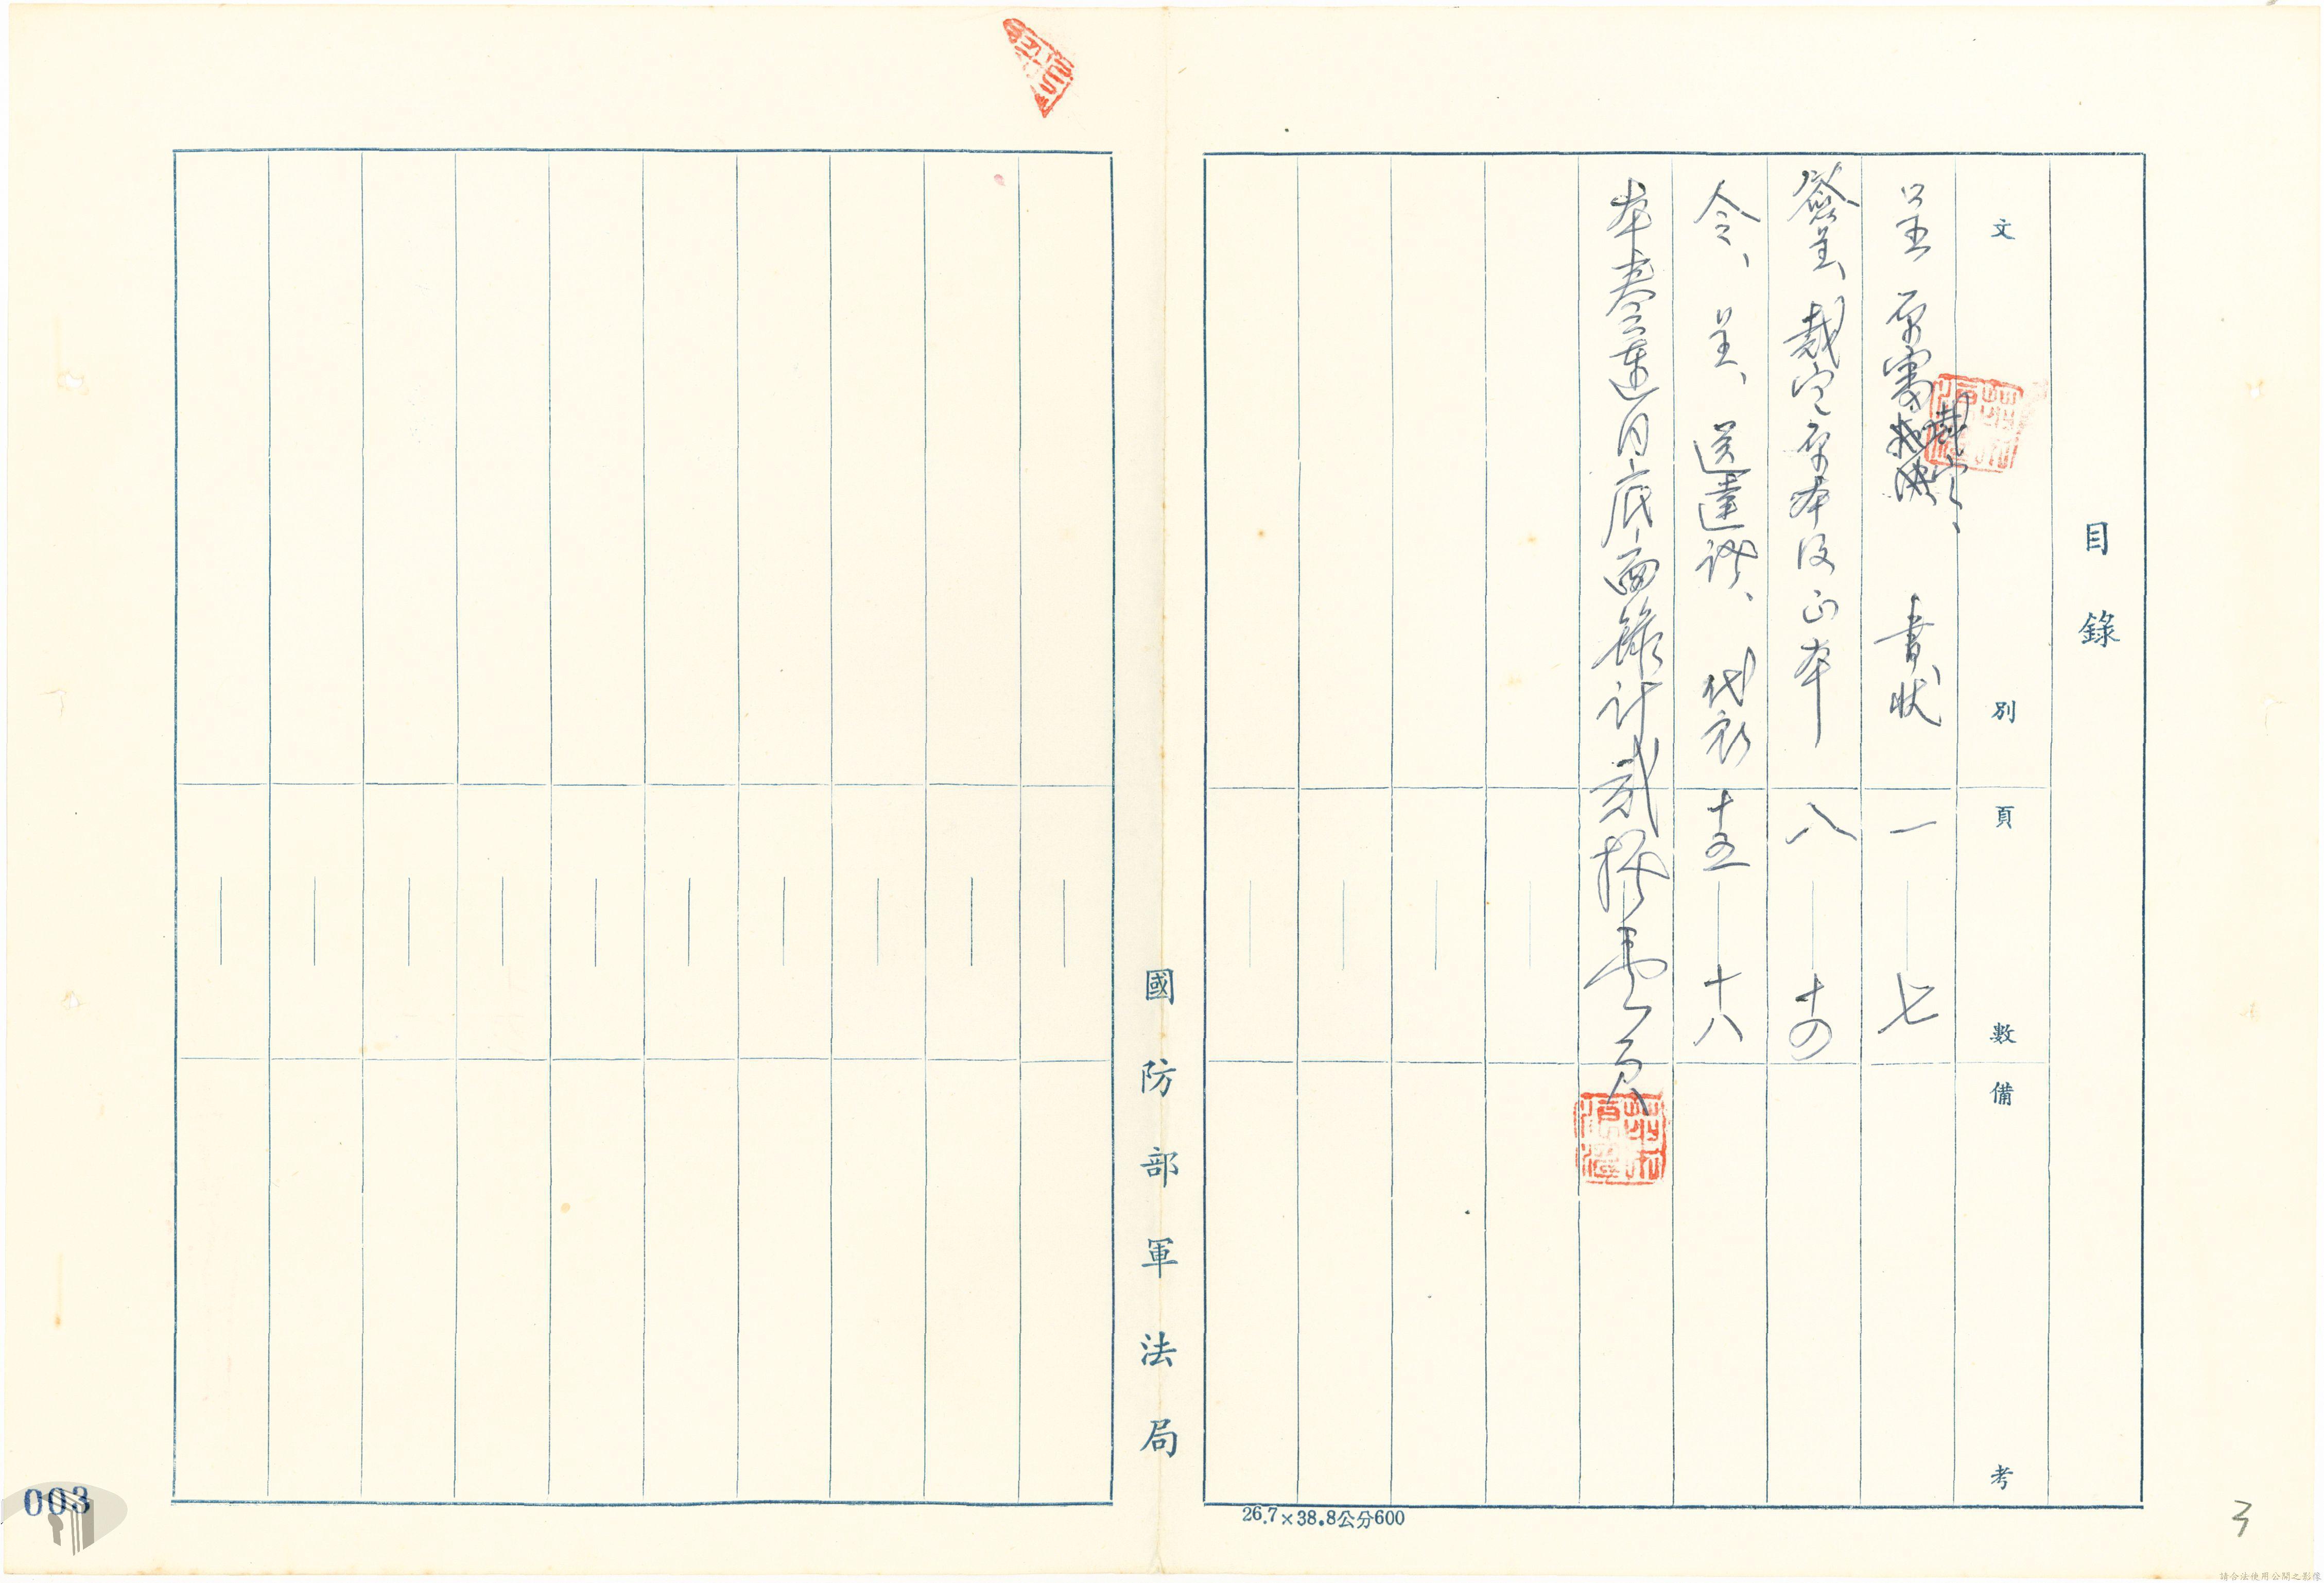 目錄
文別 頁數 備考
呈 原審裁定、書狀 一 七
簽呈、裁定原本及正本 八 十四
令、呈、送達證、代電 十五 十八
本卷連同底面錄計貳拾壹頁
國防部軍法局
26.7×38.8公分600
003
3
請合法使用公開之影像